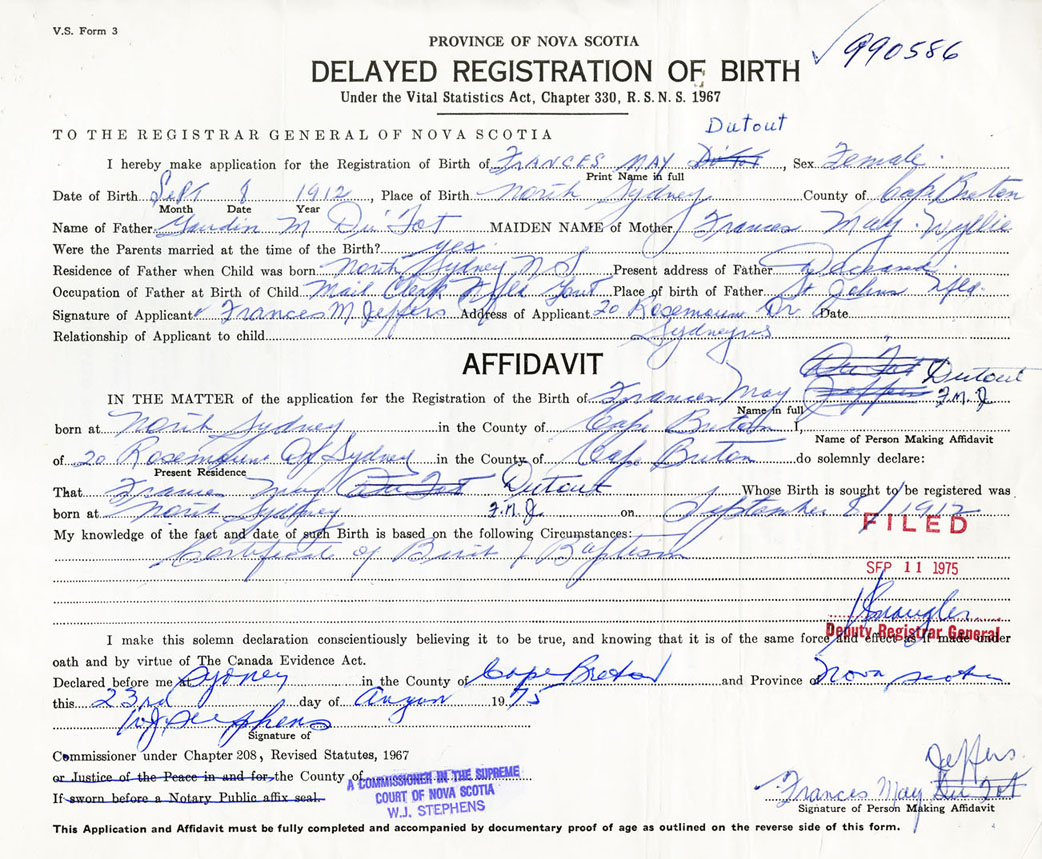 V.S. Form 3
990586
PROVINCE OF NOVA SCOTIA
DELAYED REGISTRATION OF BIRTH
Under the Vital Statistics Act, Chapter 330, R. S. N. S. 1967
TO THE REGISTRAR GENERAL OF NOVA SCOTIA
Dutout
I hereby make application for the Registration of Birth of FRANCES MAY Du Tot, Sex Female
Print Name in full
Date of Birth Sept 8 1912, Place of Birth North Sydney County of Cape Breton
Month Date Year
Name of Father M Du Tot MAIDEN NAME of Mother Frances May Wyllie
Were the Parents married at the time of the Birth? yes
Residence of Father when Child was born North Sydney N S Present address of Father
Occupation of Father at Birth of Child Mail Clerk Nfld Place of birth of Father St Johns Nfld.
Signature of Applicant Frances M Jeffers Address of Applicant 20 Rosemount Dr Date
Relationship of Applicant to child Sydney NS
AFFIDAVIT
Du Tot Dutout
IN THE MATTER of the application for the Registration of the Birth of Frances May Jeffers F.M.J
Name in full
born at North Sydney in the County of Cape Breton I,
Name of Person Making Affidavit
of 20 Rosemount Sydney in the County of Cape Breton do solemnly declare:
Present Residence
That Frances May Du Tot Dutout Whose Birth is sought to be registered was
born at North Sydney F.M.J. on September 8/1912
FILED
My knowledge of the fact and date of such Birth is based on the following Circumstances:
Certificate of Birth / Baptism
SEP 11 1975
Deputy Registrar General
I make this solemn declaration conscientiously believing it to be true, and knowing that it is of the same force and effect as if made under
oath and by virtue of The Canada Evidence Act.
Declared before me at Sydney in the County of Cape Breton and Province of Nova Scotia
this 23rd day of 1975
W.J. Stephens
Signature of
Commissioner under Chapter 208, Revised Statutes, 1967
or Justice of the Peace in and for the County of
If sworn before a Notary Public affix seal.
A COMMISSIONER IN THE SUPREME
COURT OF NOVA SCOTIA
W.J. STEPHENS
Jeffers.
Frances May Du Tot
Signature of Person Making Affidavit
This Application and Affidavit must be fully completed and accompanied by documentary proof of age as outlined on the reverse side of this form.